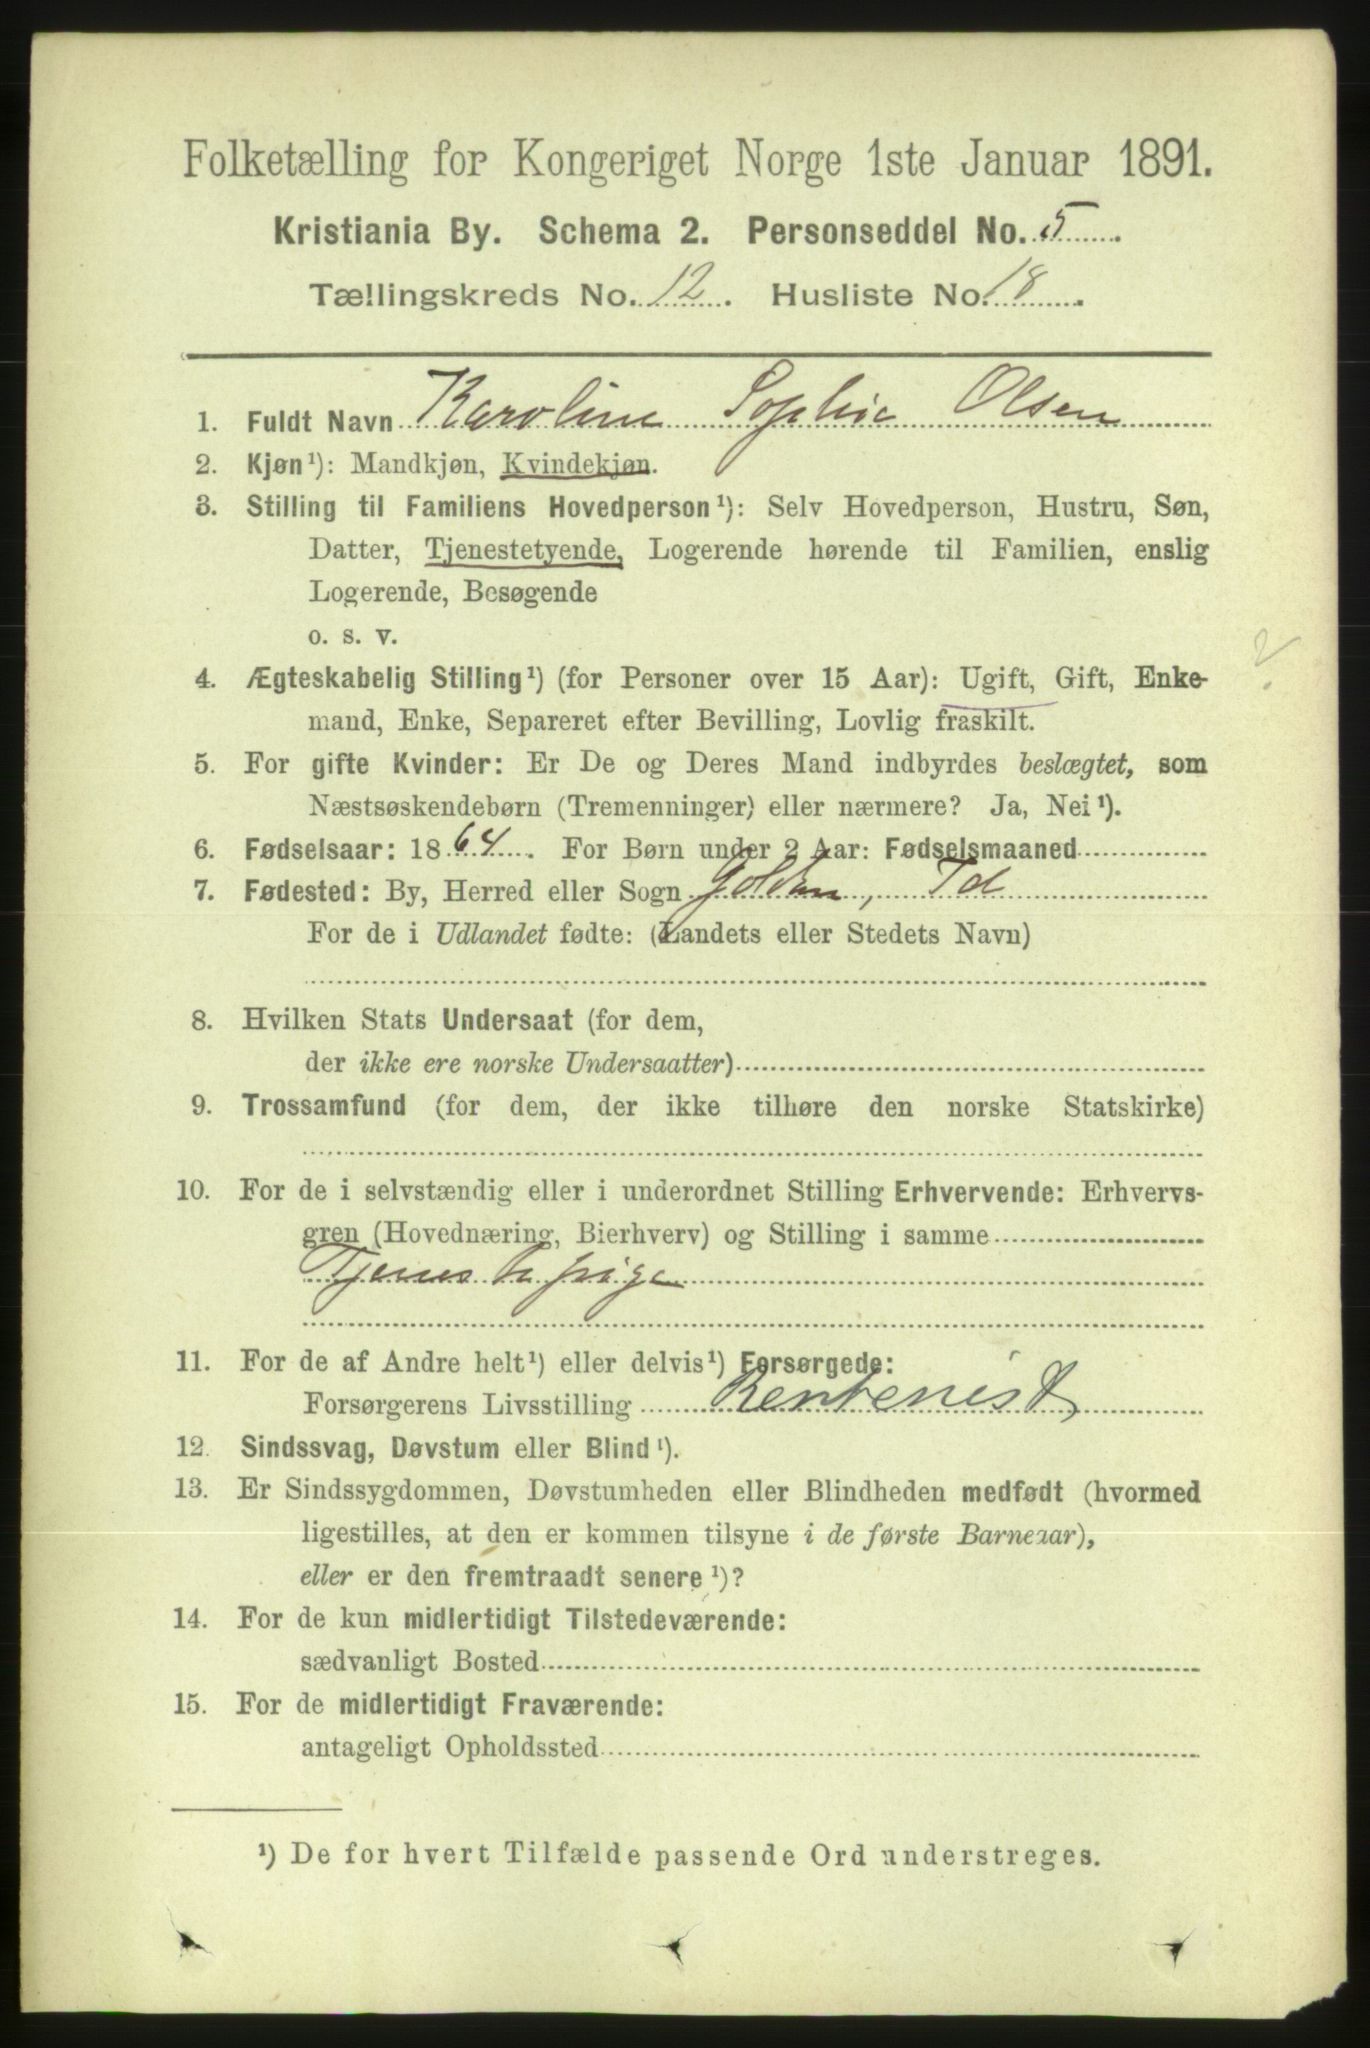 Folketælling for Kongeriget Norge 1ste Januar 1891.
Kristiania By. Schema 2. Personseddel No. 5.
Tællingskreds No. 12. Husliste No. 18.
1. Fuldt Navn Karoline Sophie Olsen
2. Kjøn¹): Mandkjøn, Kvindekjøn.
3. Stilling til Familiens Hovedperson¹): Selv Hovedperson, Hustru, Søn,
Datter, Tjenestetyende, Logerende hørende til Familien, enslig
Logerende, Besøgende
o. s. v.
?
4. Ægteskabelig Stilling¹) (for Personer over 15 Aar): Ugift, Gift, Enke-
mand, Enke, Separeret efter Bevilling, Lovlig fraskilt.
5. For gifte Kvinder: Er De og Deres Mand indbyrdes beslægtet, som
Næstsøskendebørn (Tremenninger) eller nærmere? Ja, Nei¹).
6. Fødselsaar: 1864. For Børn under 2 Aar: Fødselsmaaned
7. Fødested: By, Herred eller Sogn , Id
For de i Udlandet fødte: (Landets eller Stedets Navn)
8. Hvilken Stats Undersaat (for dem,
der ikke ere norske Undersaatter)
9. Trossamfund (for dem, der ikke tilhøre den norske Statskirke)
10. For de i selvstændig eller i underordnet Stilling Erhvervende: Erhvervs-
gren (Hovednæring, Bierhverv) og Stilling i samme
Tjenestepige
11. For de af Andre helt¹) eller delvis¹) Forsørgede:
Forsørgerens Livsstilling Rentenist
12. Sindssvag, Døvstum eller Blind¹).
13. Er Sindssygdommen, Døvstumheden eller Blindheden medfødt (hvormed
ligestilles, at den er kommen tilsyne i de første Barneaar),
eller er den fremtraadt senere¹)?
14. For de kun midlertidigt Tilstedeværende:
sædvanligt Bosted
15. For de midlertidigt Fraværende:
antageligt Opholdssted
¹) De for hvert Tilfælde passende Ord understreges.